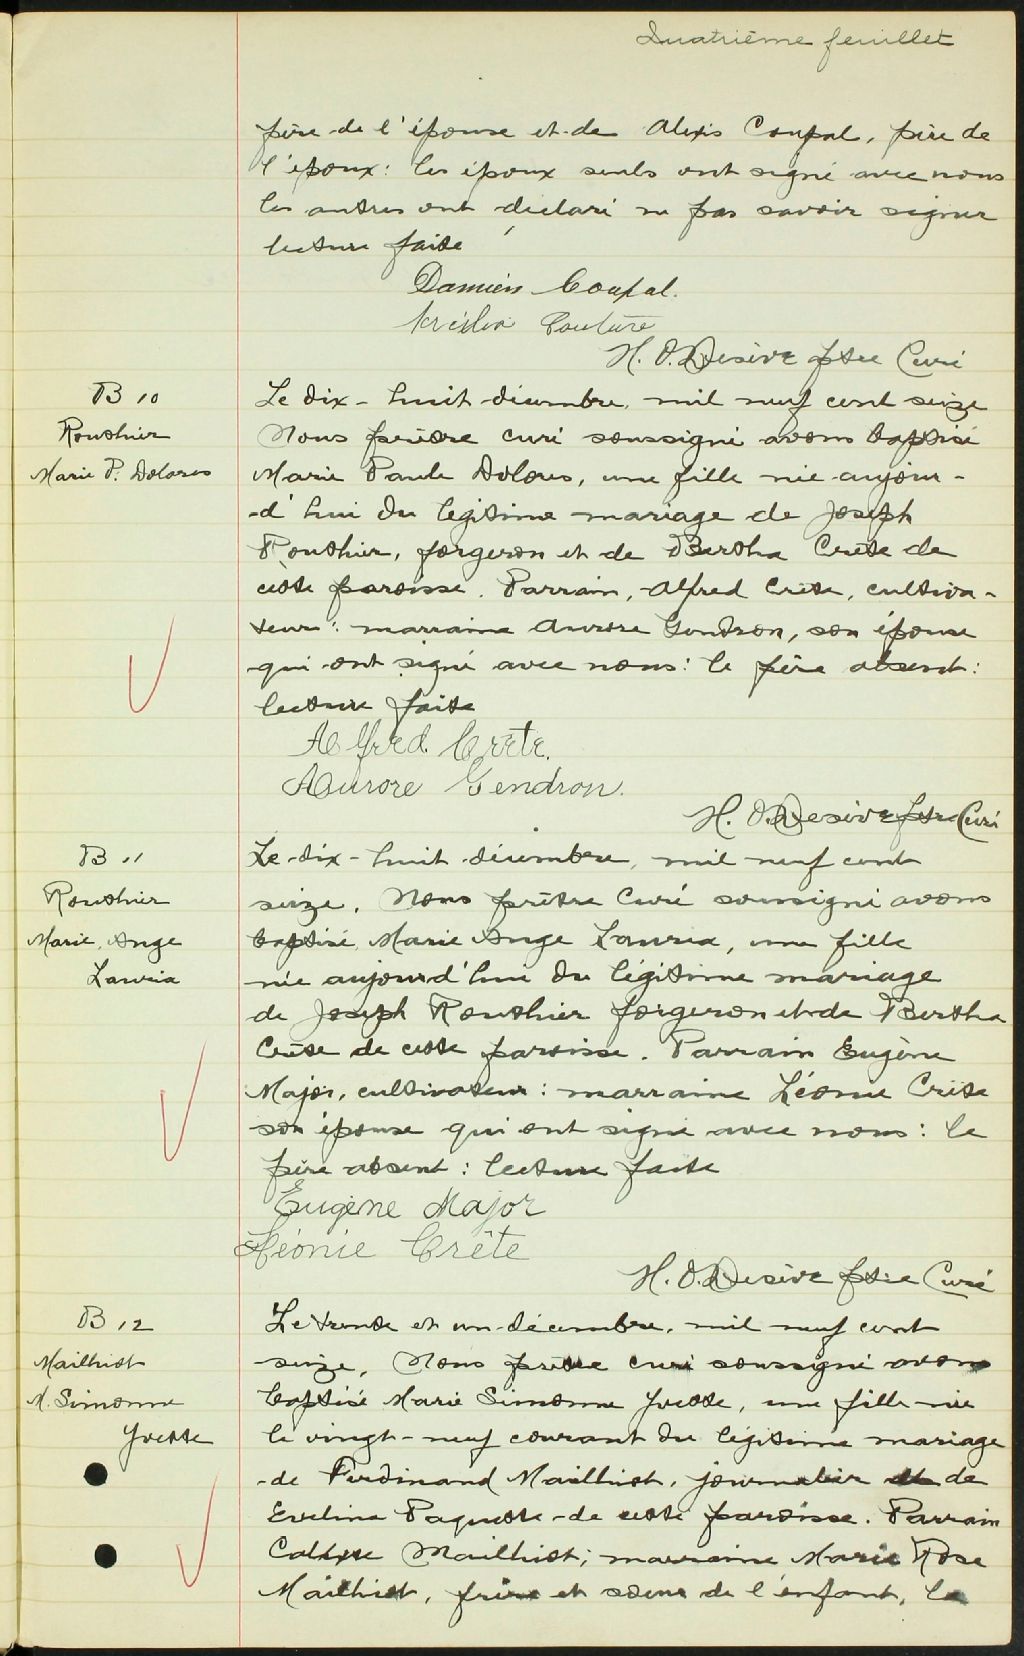 Quatrième feuillet
père de l'épouse et de Alexis Coupal, père de
l'époux: les époux seuls ont signé avec nous
les autres ont déclaré ne pas savoir signer
lecture faite
Damien Coupal.
Couture
H. O. Desève ptre Curé
B 10
Routhier
Marie P. Dolores
Le dix-huit décembre, mil neuf cent seize
Nous prêtre curé soussigné avons baptisé
Marie Paule Dolores, une fille née aujour-
-d'hui du légitime mariage de Joseph
Routhier, forgeron et de Bertha Crête de
cette paroisse. Parrain, Alfred Crête, cultiva-
teur: marraine Aurore Gendron, son épouse
qui ont signé avec nous: le père absent:
lecture faite
Alfred. Crête.
Aurore Gendron.
H. O. Desève ptre Curé
B 11
Routhier
Marie Ange
Lauria
Le dix-huit décembre, mil neuf cent
seize, Nous prêtre Curé soussigné avons
baptisé Marie Ange Lauria, une fille
née aujourd'hui du légitime mariage
de Joseph Routhier forgeron et de Bertha
Crête de cette paroisse. Parrain Eugène
Major, cultivateur: marraine Léonie Crête
son épouse qui ont signé avec nous: le
père absent: lecture faite
Eugène Major
Léonie Crête
H. O. Desève ptre Curé
B 12
Mailhiot
M. Simonne
Yvette
Le trente et un décembre, mil neuf cent
seize, Nous prêtre curé soussigné avons
baptisé Marie Simonne Yvette, une fille née
le vingt-neuf courant du légitime mariage
de Ferdinand Mailhiot, journalier et de
Evelina Paquette de cette paroisse. Parrain
Calixte Mailhiot; marraine Marie Rose
Mailhiot, frère et soeur de l'enfant, le